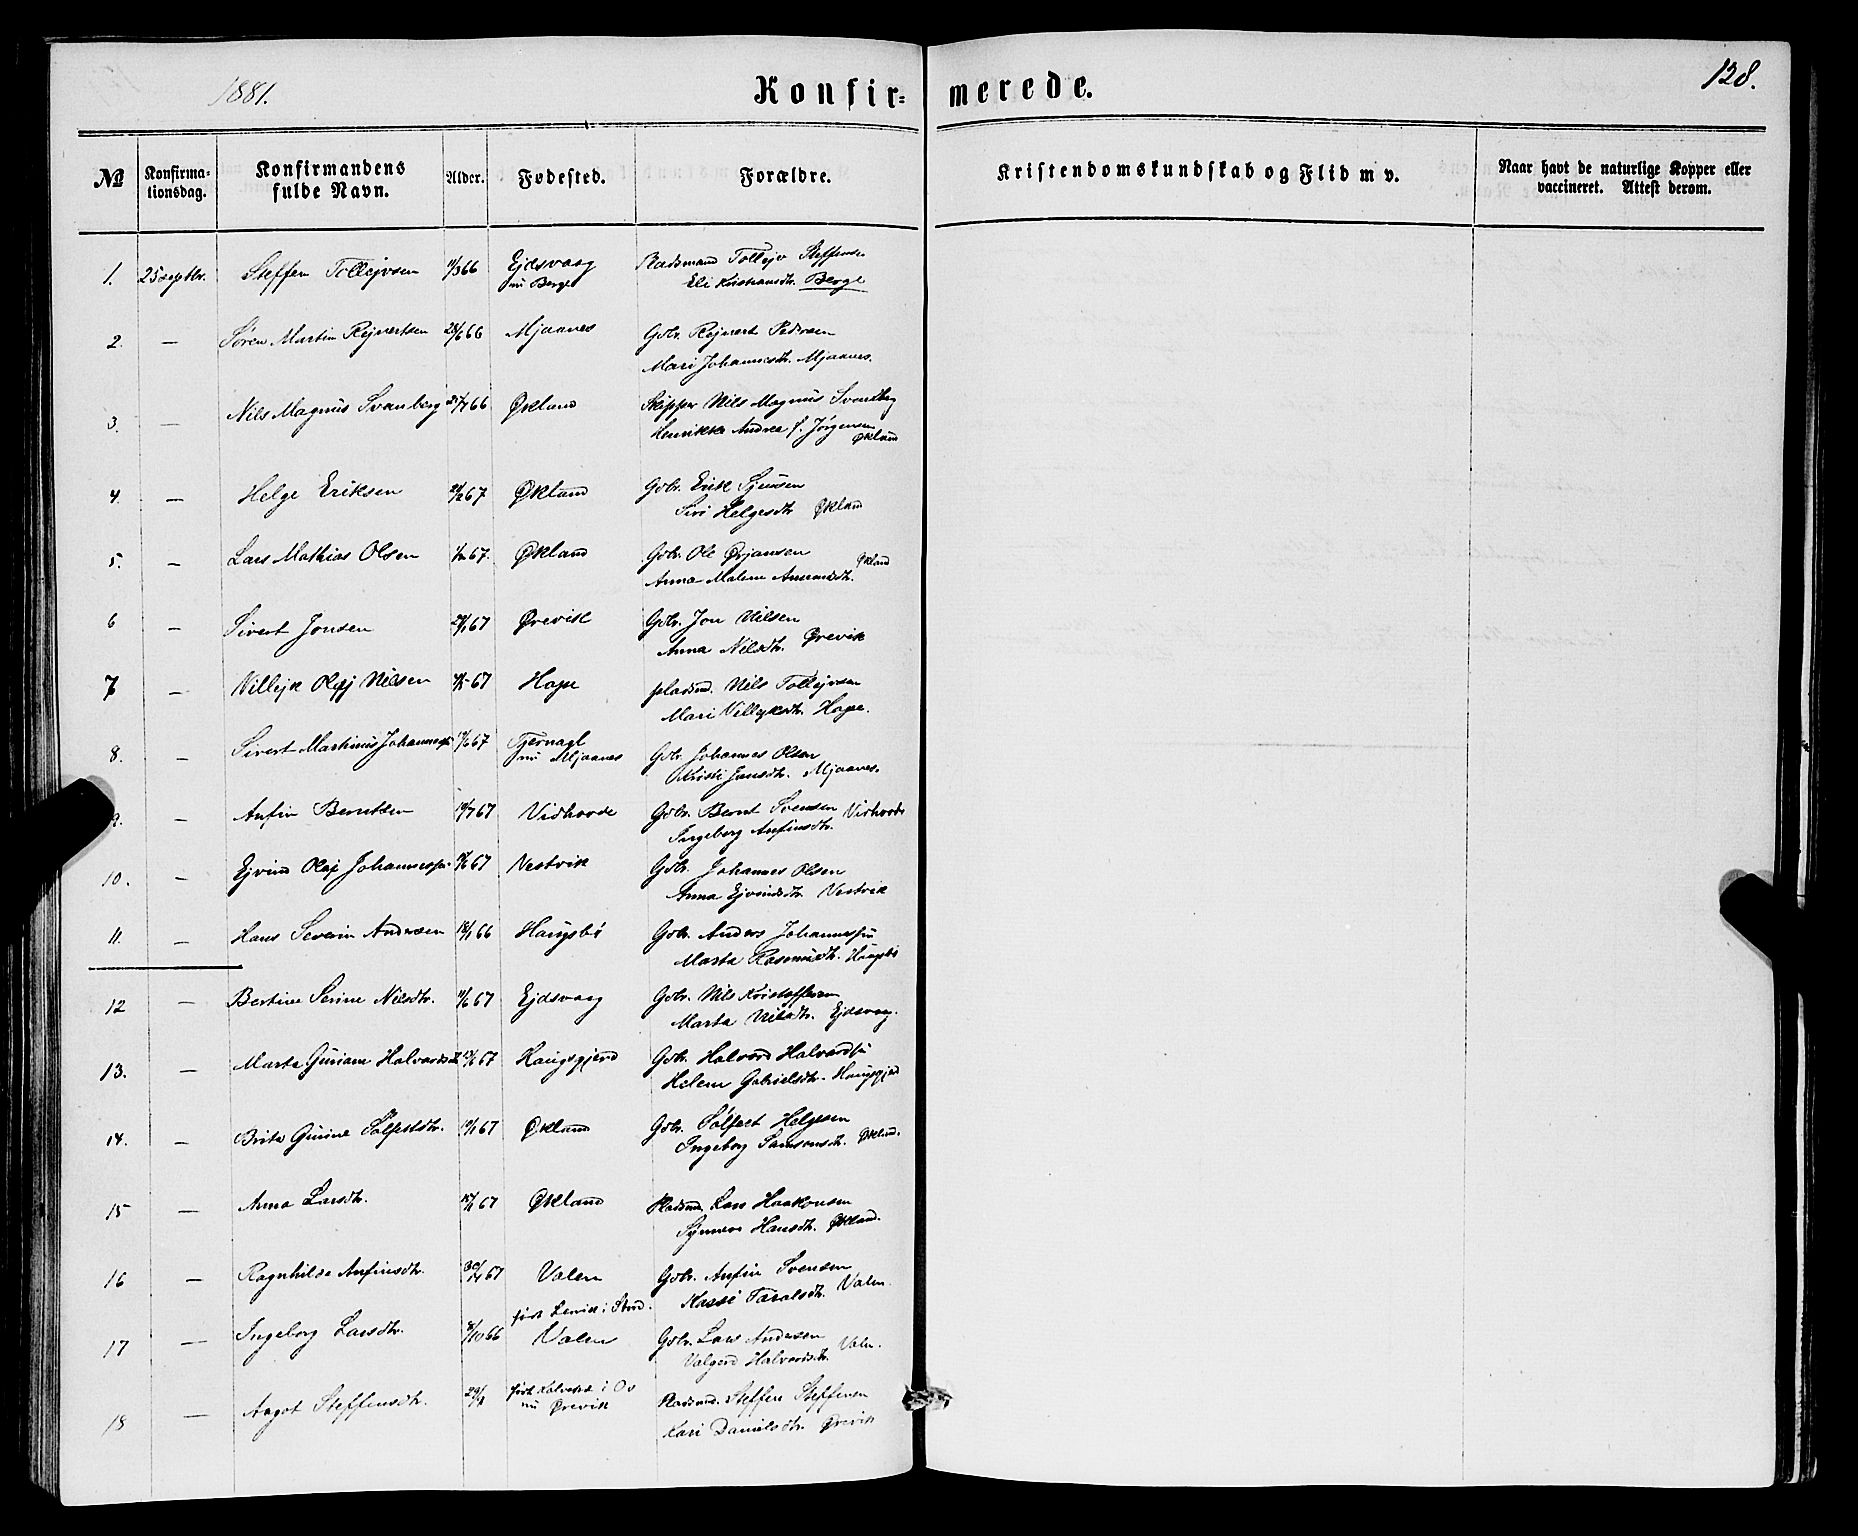 1881.
Konfir=
merede.
128.
№
Konfirma-
tionsdag.
Konfirmandens
fulde Navn.
Alder.
Fødested.
Forældre.
Kristendomskundskab og Flid m v.
Naar havt de naturlige Kopper eller
vaccineret. Attest derom.
1. 25 septbr. Steffen Tollejvsen 11/3 66 Ejdsvaag Pladsmand Tollejv Steffensen
nu Berge Eli Kristiansdtr. Berge
2. — Søren Martin Rejnertsen 28/6 66 Mjaanes Gdbr. Rejnert Pedersen
Mari Johannesdtr. Mjaanes.
3. — Nils Magnus Svanberg 66 Økland Skipper Nils Magnus Svanberg
Henrikke Andrea f. Jørgensen
Økland
4. — Helge Eriksen 67 Økland Gdbr. Erik Sjursen
Siri Helgesdtr Økland
5. — Lars Mathias Olsen 67 Økland Gdbr. Ole Ørjansen Økland
Anna Malene Amundsdtr.
6 — Sivert Jonsen 67 Ørevik Gdbr. Jon Nilsen
Anna Nilsdtr. Ørevik
7 — Villejk Olaj Nilsen 67 Hope pladsmd. Nils Tollejvsen
Mari Villejksdtr. Hope.
8. — Sivert Martinus Johannessen 67 Tjernagl
nu Mjaanes Gdbr. Johannes Olsen
Kristi Jansdtr. Mjaanes.
9. — Anfin Berntsen 19/7 67 Vidhovde Gdbr. Bernt Svensen Vidhovde
Ingeborg Anfinsdtr.
10. — Ejvind Olaj Johannessen 67 Vestvik Gdbr. Johannes Olsen
Anna Ejvindsdtr. Vestvik
11. — Hans Severin Andersen 18/1 66 Haugsbø Gdbr. Anders Johannessen
Marta Rasmusdtr. Haugsbø
12 — Bertine Serine Nilsdtr. 11/6 67 Ejdsvaag Gdbr. Nils Kristoffersen
Marta Nilsdtr. Ejdsvaag.
13. — Marta Guriane Halvardsdtr 67 Haugsgjerd Gdbr. Halvard Halvardsen
Helene Gabrielsdtr. Haugsgjerd
14. — Brita Gurine Sølfestdtr. 67 Økland Gdbr. Sølfest Helgesen
Ingeborg Samsonsdtr. Økland.
15 — Anna Larsdtr. 67 Økland Pladsmd. Lars Haakonsen
Synneva Hansdtr. Økland.
16 — Ragnhilde Anfinsdtr. 67 Valen Gdbr. Anfin Svensen
Kassi Taraldsdtr. Valen.
17 — Ingeborg Larsdtr. 8/10 66 født Lervik i Stord.
Valen Gdbr. Lars Andersen Valen.
Valgerd Halvardsdtr.
18 — Aagot Steffensdtr. født i Os
nu Ørevik Pladsmd. Steffen Steffensen
Kari Danielsdtr. Ørevik